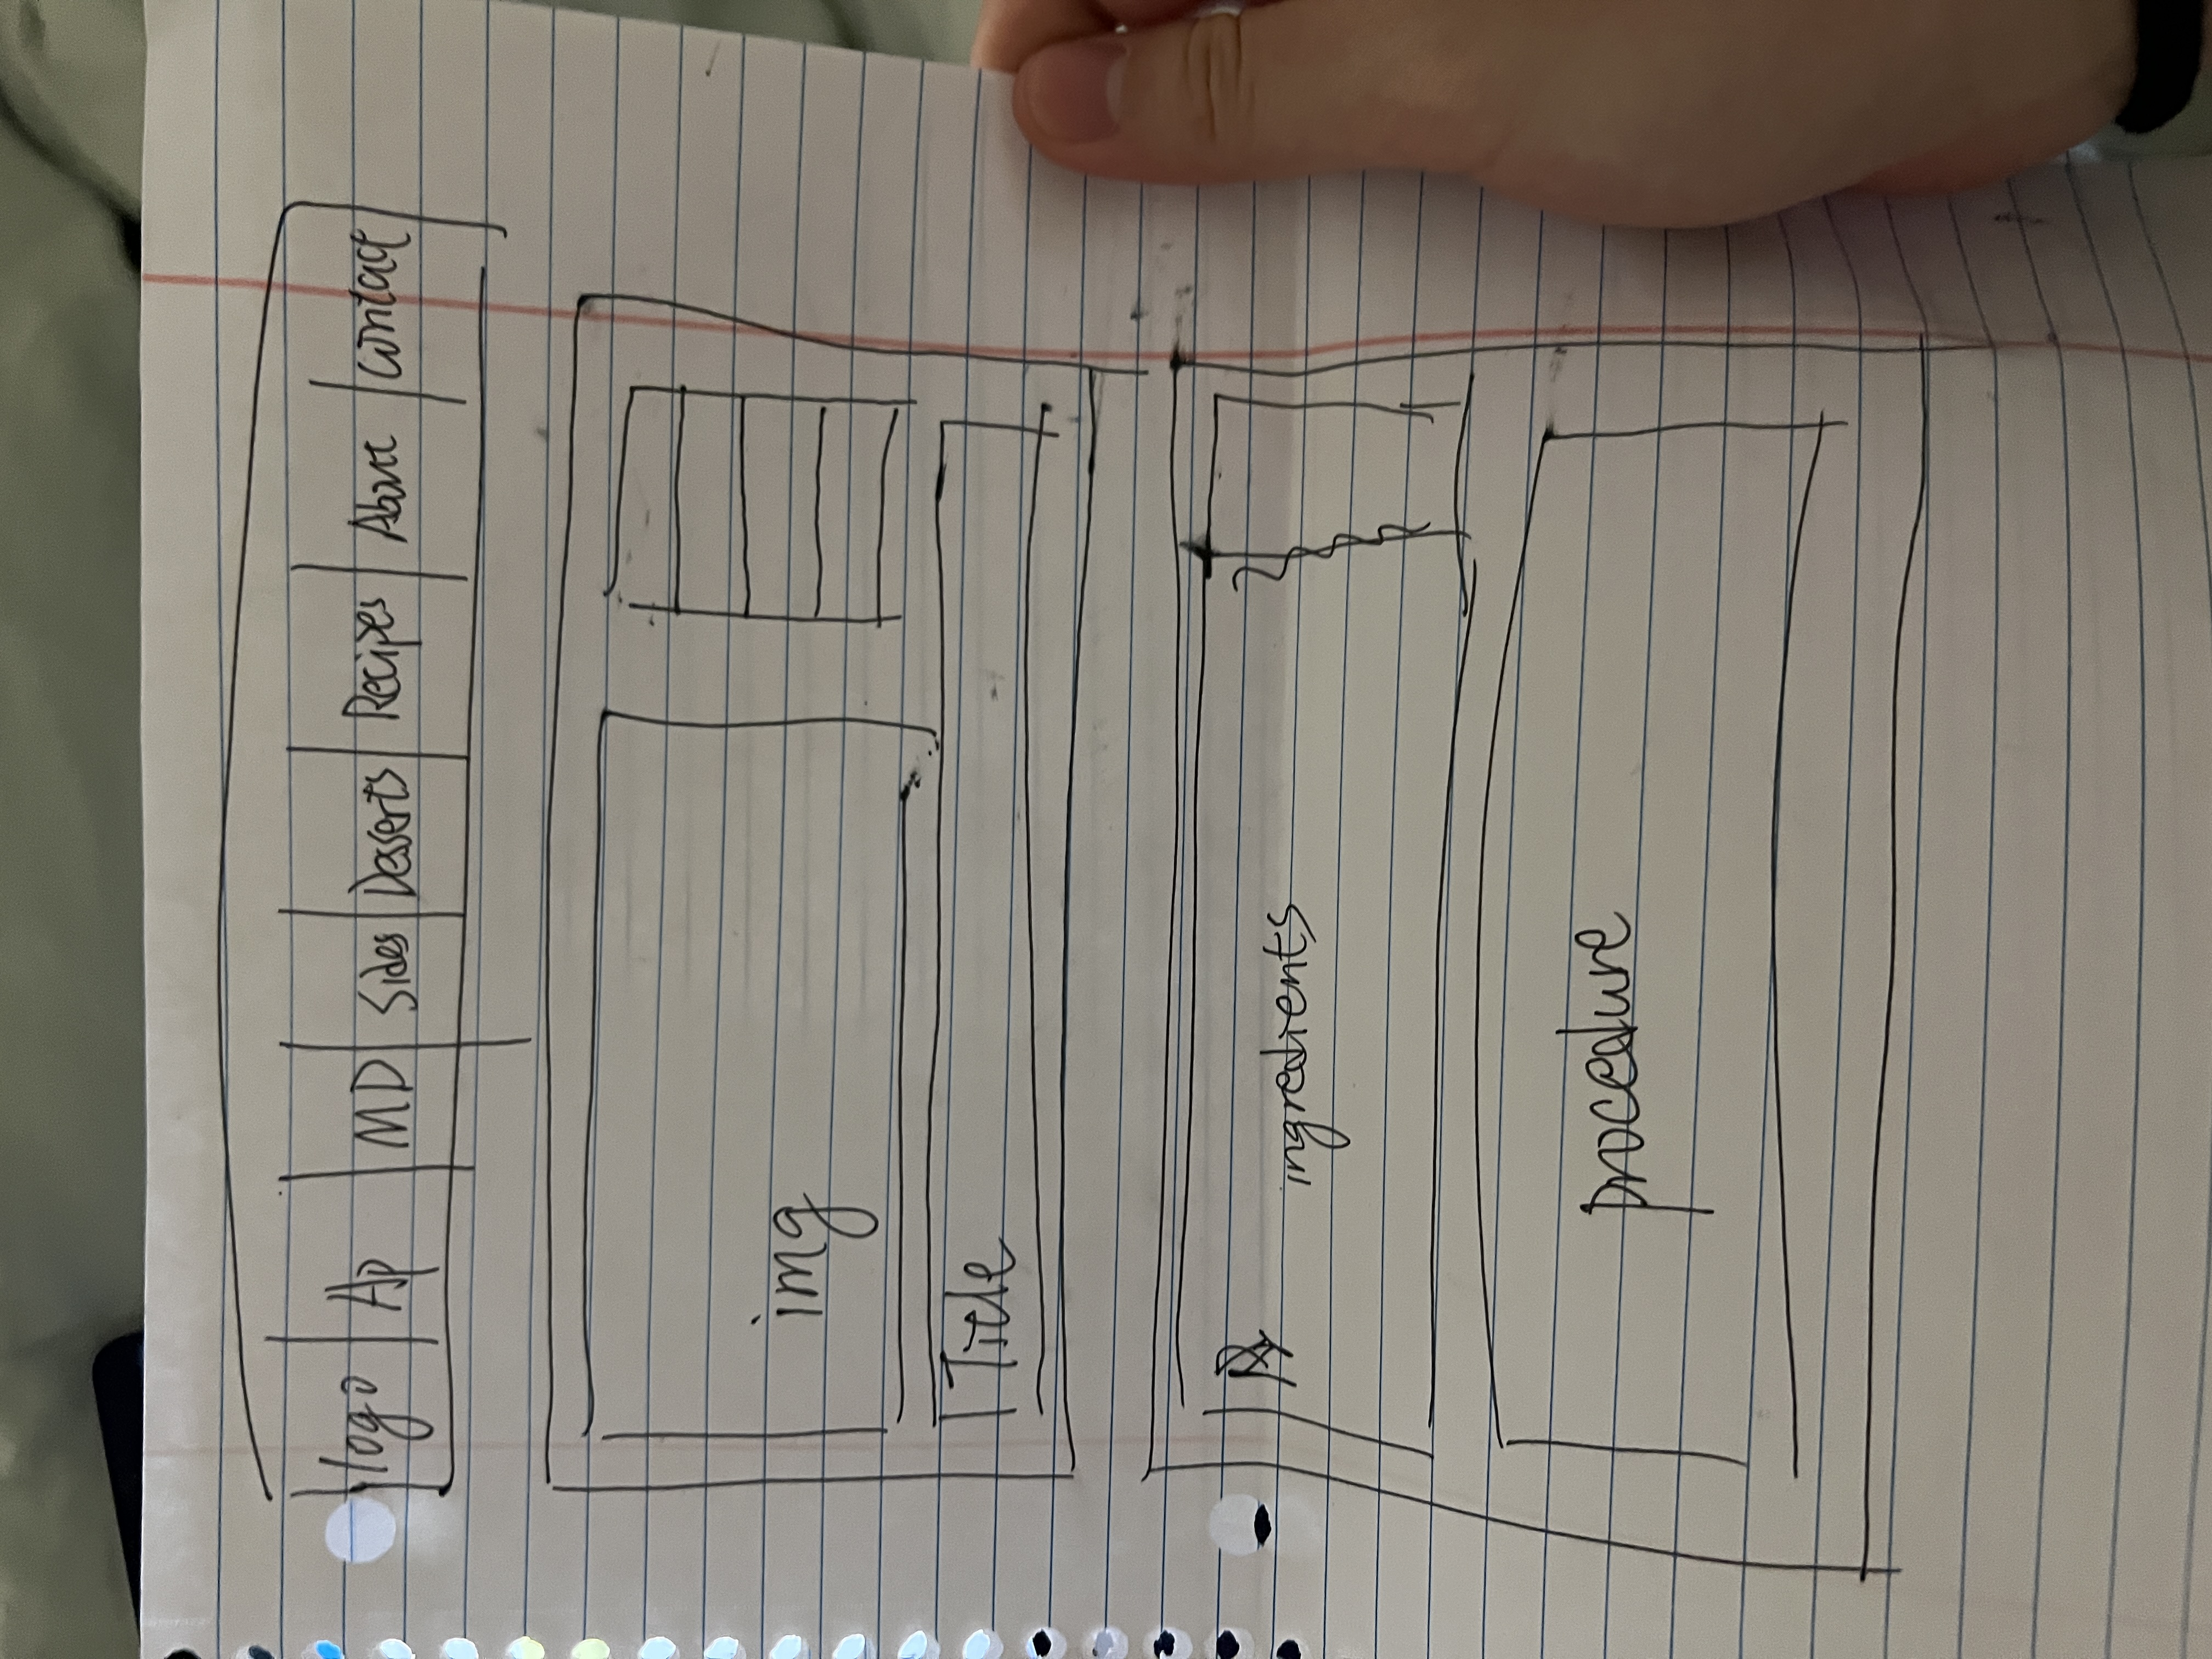 logo Ap MD Sides Desserts Recipes About Contact
img
Title
ingredients
procedure